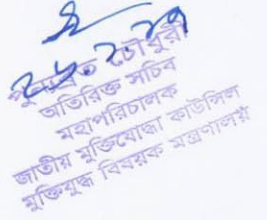 চৌধুরী
অতিরিক্ত সচিব
মহাপরিচালক
জাতীয় মুক্তিযোদ্ধা কাউন্সিল
মুক্তিযুদ্ধ বিষয়ক মন্ত্রণালয়